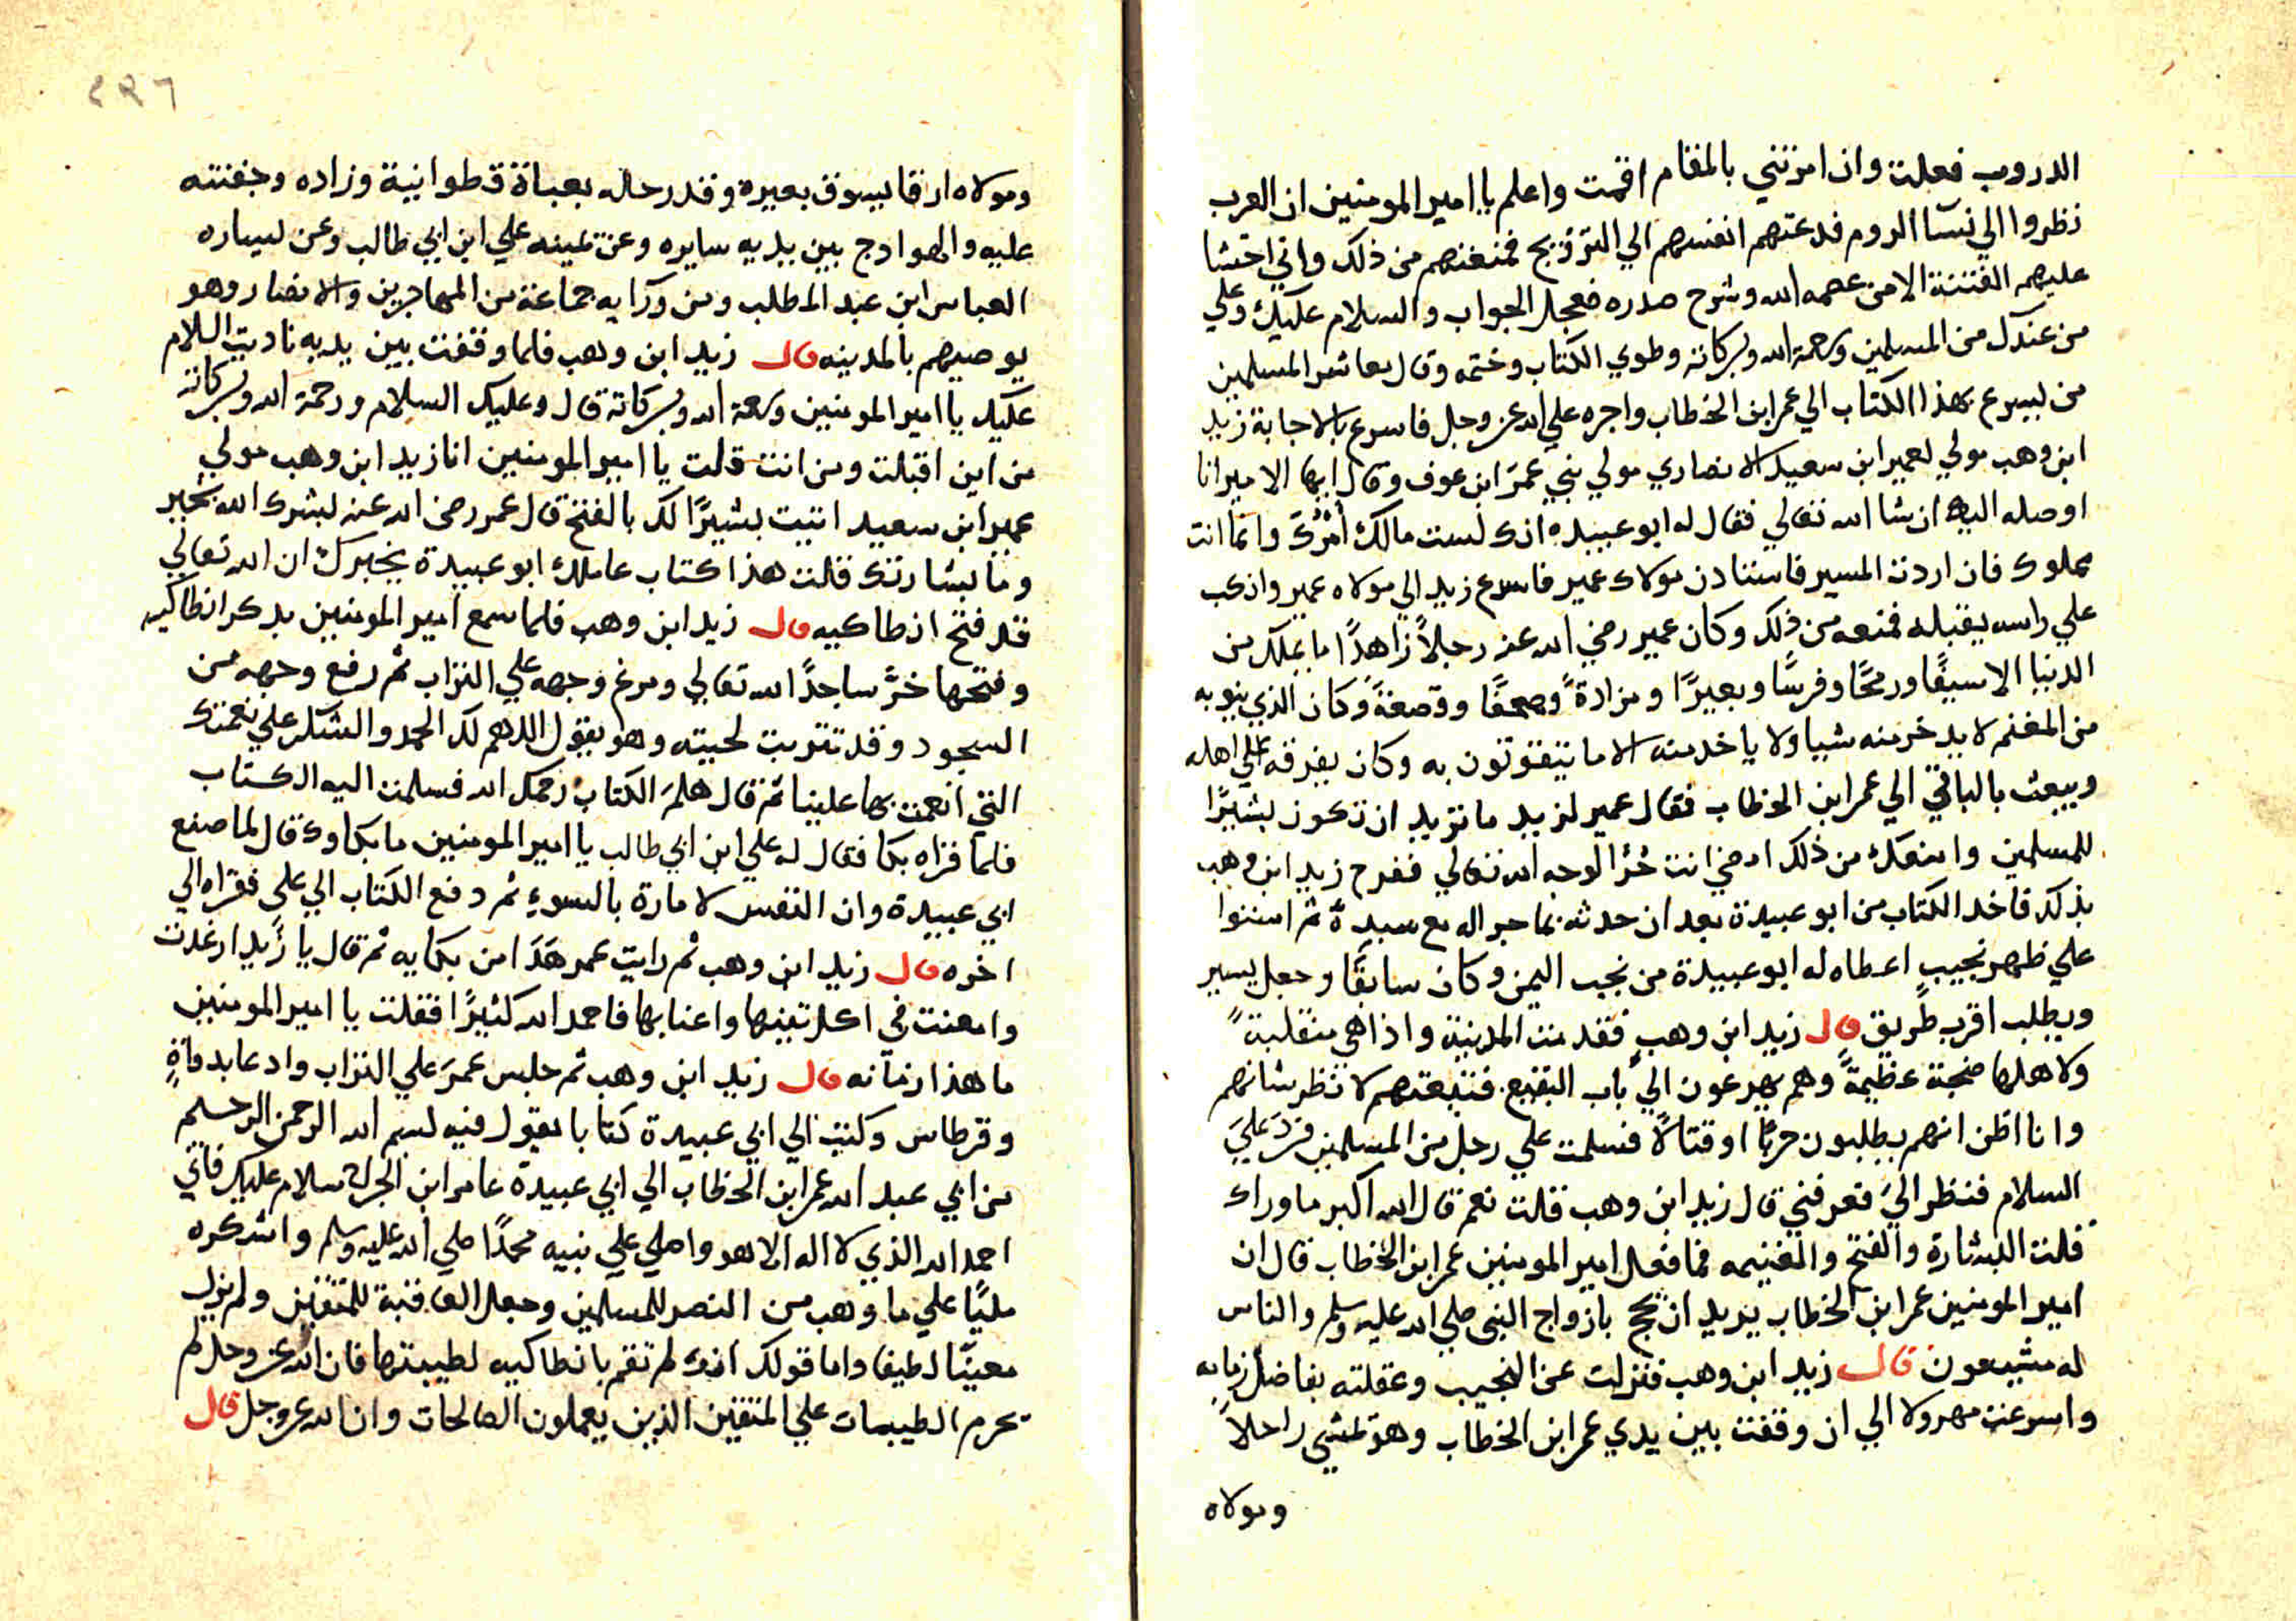 الدروب فعلت وان امرتني بالمقام اقمت واعلم يا امير المومنين ان العرب
نظروا الي نسآ الروم فدعتهم انفسهم الي التزويج فمنعتهم من ذلك واني اخشا
عليهم الفتنة الا من عصمه الله وشرح صدره فعجل الجواب والسلام عليك وعلي
من عندك من المسلمين ورحمة الله وبركاته وطوي الكتاب وختمه وقال معاشر المسلمين
من يسرع بهذا الكتاب الي عمر ابن الخطاب واجره علي الله عز وجل فاسرع بالاجابة زيد
ابن وهب مولي لعمير ابن سعيد الانصاري مولي بني عمرَ ابن عوف وقال ايها الامير انا
اوصله اليه ان شا الله تعالي فقال له ابو عبيده انك لست مالك أمْرُكَ وانما انت
مملوك فان اردت المسير فاستادن مولاك عمير فاسرع زيد الي مولاه عمير وانكب
علي راسه يقبله فمنعه من ذلك وكان عمير رضي الله عنه رجلاً زاهدًا ما يملك من
الدنيا الا سيفًا ورمحًا وفرسًا وبعيرًا ومزادةً وصحفًا وقصعةً وكان الذي ينوبه
من المغنم لا يدخر منه شييا ولا ياخد منه الا ما يتقوتون به وكان يفرقه علي اهله
ويبعث بالباقي الي عمر ابن الخطاب فقال عمير لزيد ما تريد ان تكون بشيرًا
للمسلمين وامنعك من ذلك امضي انت حُرًّا لوجه الله تعالي ففرح زيد ابن وهب
بذلك فاخد الكتاب من ابو عبيدة بعد ان حدثه بما جراله مع سيده ثم استوا
علي ظهر نجيبٍ اعطاه له ابو عبيدة من نجب اليمن وكان سابقًا وجعل يسير
ويطلب اقرب طريق قال زيد ابن وهب فقدمت المدينة واذا هي منقلبةً
ولاهلها ضجة عظيمةً وهم يهرعون الي باب البقيع فتبعتهم لانظر شانهم
وانا اظن انهم يطلبون حربًا او قتالاً فسلمت علي رجل من المسلمين فردَ عليَ
السلام فنظر اليَ فعرفني قال زيد ابن وهب قلت نعم قال الله اكبر ما وراك
قلت البشارة والفتح والغنيمه فما فعل امير المومنين عمر ابن الخطاب قال ان
امير المومنين عمر ابن الخطاب يريد ان يحج بازواج النبي صلي الله عليه وسلم والناس
له مشيعون قال زيد ابن وهب فنزلت عن النجيب وعقلته بفاضل زمامه
واسرعت مهرولا الي ان وقفت بين يدي عمر ابن الخطاب وهو يمشي راجلاً
ومولاه
٤٩٦
ومولاه ارقا يسوق بعيره وقد رحاله بعباة قطوانية وزاده وجفنته
عليه والهوادج بين يديه سايره وعن يمينه علي ابن ابي طالب وعن يساره
العباس ابن عبد المطلب ومن ورآيه جماعة من المهاجرين والانصار وهو
يوصيهم بالمدينه قال زيد ابن وهب فلما وقفت بين يديه ناديت السلام
عليك يا امير المومنين ورحمة الله وبركاته قال وعليك السلام ورحمة الله وبركاته
من اين اقبلت ومن انت قلت يا امير المومنين انا زيد ابن وهب مولي
عمير ابن سعيد اتيت بشيرًا لك بالفتح قال عمر رضي الله عنه بشرك الله بخير
وما بشارتك قلت هذا كتاب عاملك ابو عبيدة يخبرك ان الله تعالي
قد فتح انطاكيه قال زيد ابن وهب فلما سمع امير المومنين بدكر انطاكيه
وفتحها خرَّ ساجدًا لله تعالي ومرغ وجهه علي التراب ثم رفع وجهه من
السجود وقد تتربت لحيته وهو يقول اللهم لك الحمد والشكر علي نعمتك
التي انعمت بها علينا ثم قال هلمَ الكتاب رحمك الله فسلمت اليه الكتاب
فلما قراه بكا فقال له علي ابن ابي طالب يا امير المومنين ما بكاوك قال لما صنع
ابي عبيدة وان النفس لامارة بالسوءِ ثم دفع الكتاب الي علي فقراه الي
اخره قال زيد ابن وهب ثم رايت عمر هَدَا من بكايه ثم قال يا زَيد ارغدت
وامعنت في اكل تينها واعنابها فاحمد الله كثيرًا فقلت يا امير المومنين
ما هذا زمآنه قال زيد ابن وهب ثم جلس عمرَ علي التراب وادعا بدواةٍ
وقرطاس وكتب الي ابي عبيدة كتابا يقول فيه بسم الله الرحمن الرحيم
من ابي عبد الله عمر ابن الخطاب الي ابي عبيدة عامر ابن الجراح سلام عليك فاني
احمد الله الذي لا اله الا هو واصلي علي نبيه محمدًا صلي الله عليه وسلم واشكره
مليًا علي ما وهب من النصر للمسلمين وجعل العاقبة للمتقين ولم يزل
معينًا لطيفا واما قولك انك لم تقم بانطاكيه لطيبتها فان الله عز وجل لم
يحرم الطيبات علي المتقين الذين يعملون الصالحات وان الله عز وجل قال